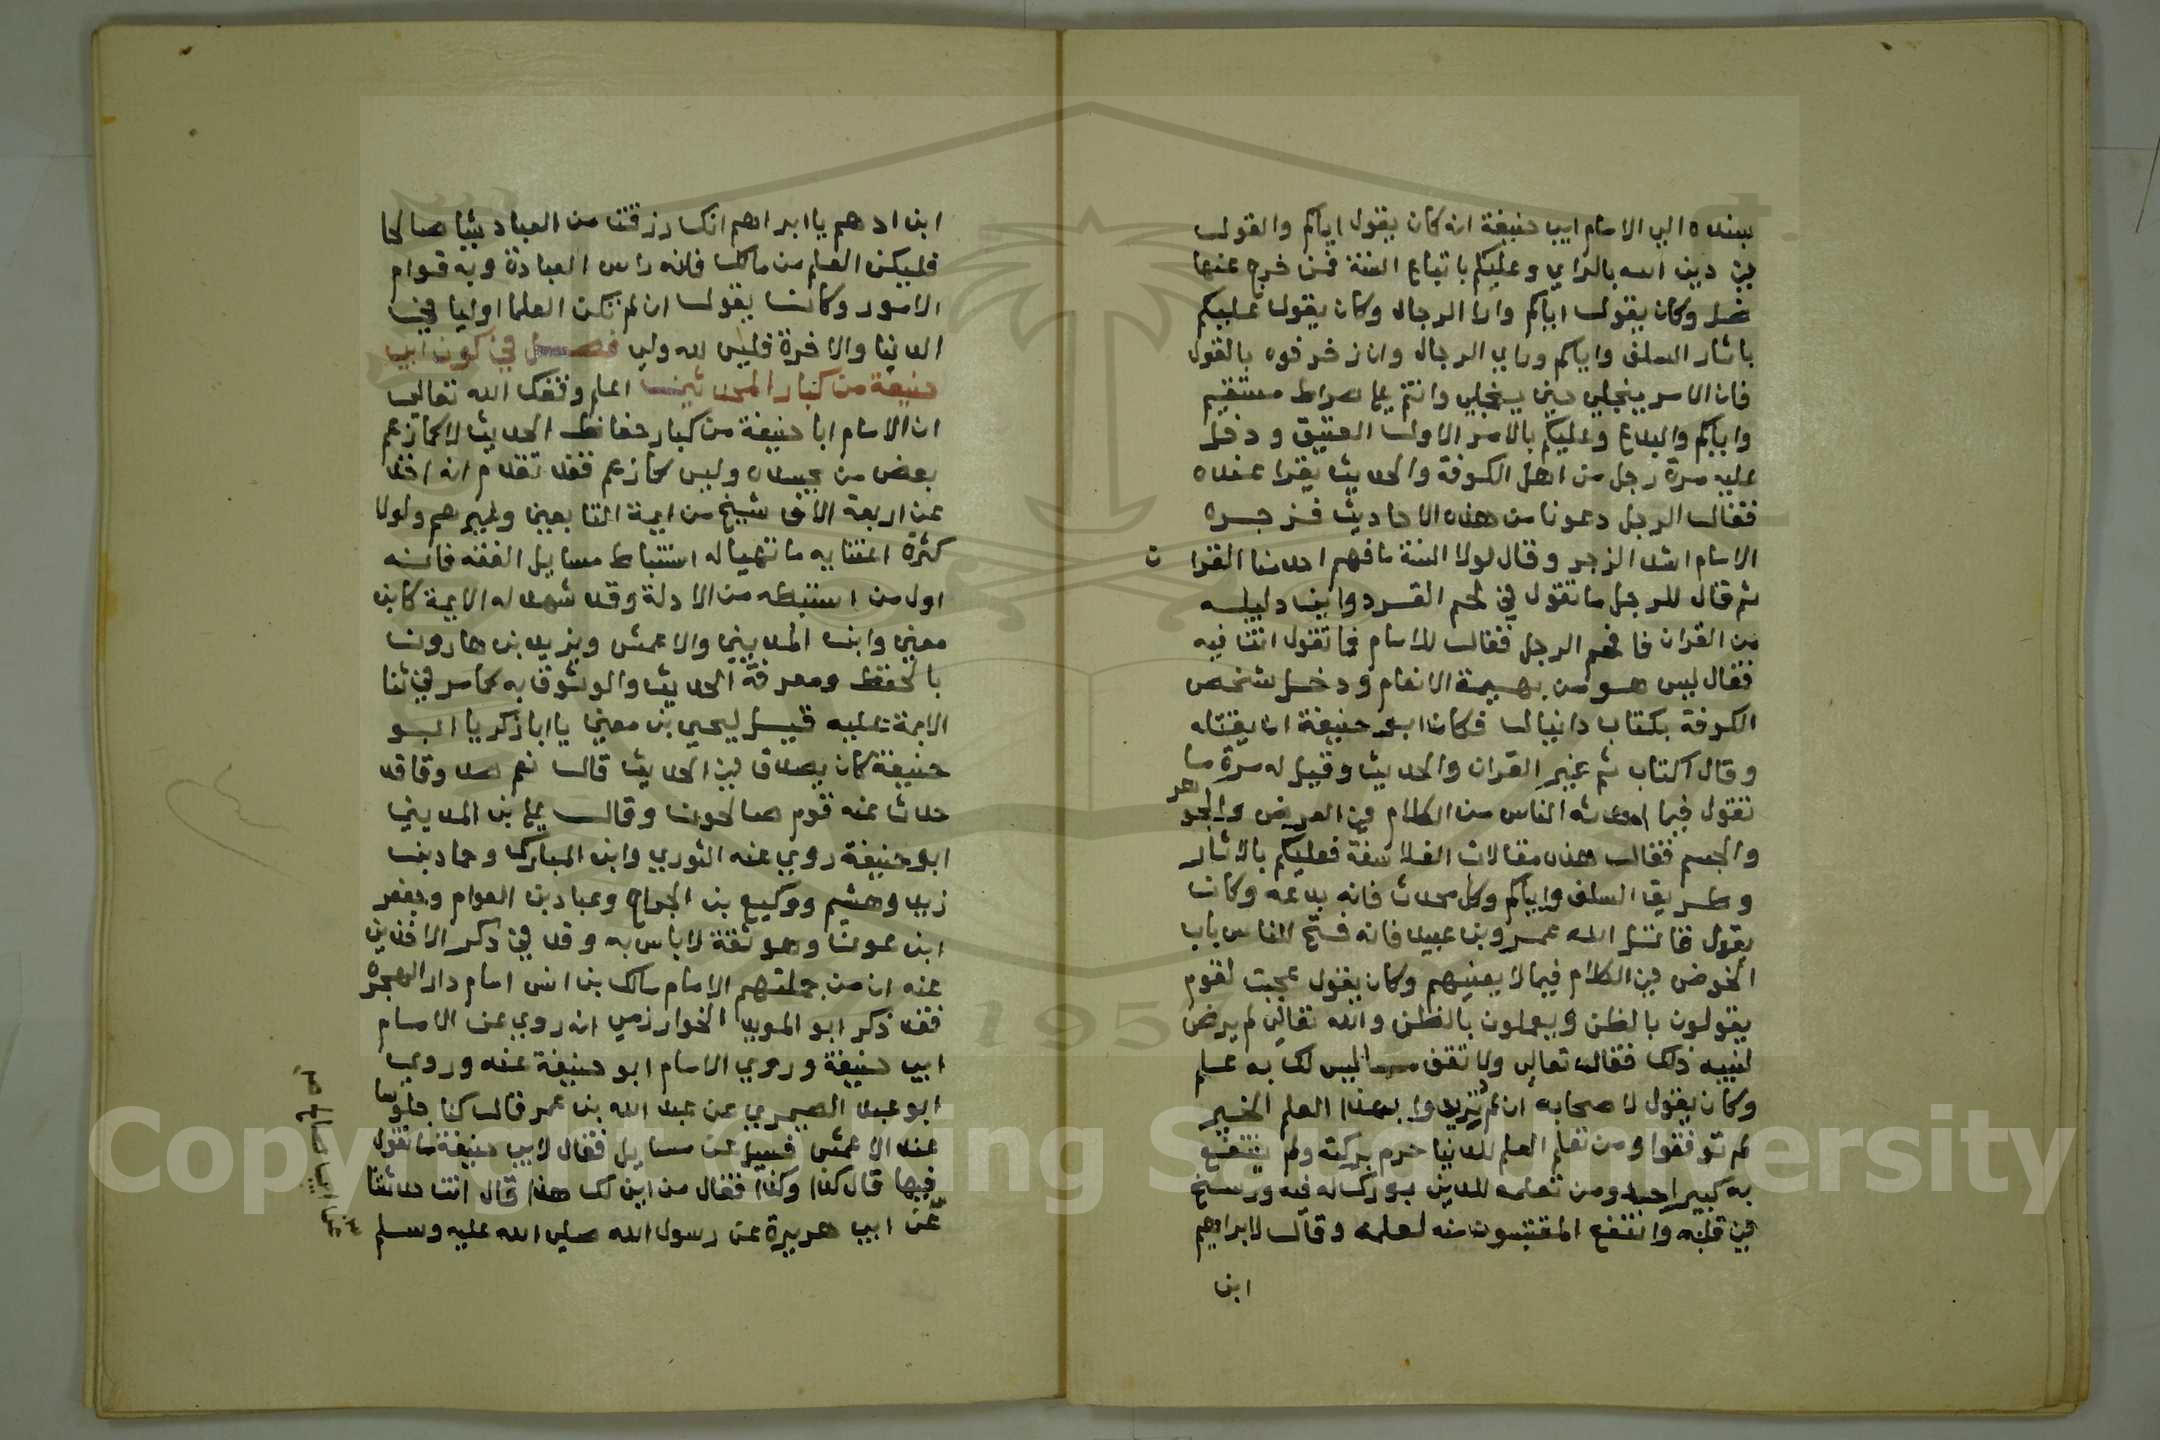 بسنده الي الامام ابي حنيفة انه كان يقول اياكم والقول
في دين الله بالراي وعليكم باتباع السنة فمن خرج عنها
ضل وكان يقول اياكم وارا الرجال وكان يقول عليكم
باثار السلف واياكم وراي الرجال وان زخرفوه بالقول
فان الامر ينجلي حين ينجلي وانتم علي صراط مستقيم
واياكم والبدع وعليكم بالامر الاول العتيق ودخل
عليه مرة رجل من اهل الكوفة والحديث يقرا عنده
فقال الرجل دعونا من هذه الاحاديث فزجره
الامام اشد الزجر وقال لولا السنة ما فهم احد منا القران
ثم قال للرجل ما تقول في لحم القرد واين دليله
من القران فافحم الرجل فقال للامام فما تقول انت فيه
فقال ليس هو من بهيمة الانعام ودخل شخص
الكوفة بكتاب دانيال فكان ابو حنيفة ان يقتله
وقال اكتاب ثم غير القران والحديث وقيل له مرة ما
تقول فيما احدثه الناس من الكلام في العرض والجوهر
والجسم فقال هذه مقالات الفلاسفة فعليكم بالاثار
وطريق السلف واياكم وكل محدث فانه بدعه وكان
يقول قاتل الله عمرو بن عبيد فانه فتح للناس باب
الخوض في الكلام فيما لا يعنيهم وكان يقول عجبت لقوم
يقولون بالظن ويعملون بالظن والله تعالي لم يرض
لنبيه ذلك فقال تعالي ولا تقف ما ليس لك به علم
وكان يقول لاصحابه ان لم تريدوا بهذا العلم الخير
لم توفقوا ومن تعلم العلم للدنيا حرم بركته ولم ينتفع
به كبير احد ومن تعلمه للدين بورك له فيه ورسخ
في قلبه وانتفع المقتبسون منه لعلمه وقال لابراهيم
ابن
ابن ادهم يا ابراهم انك رزقت من العبادة شيا صالحا
فليكن العلم من مالك فانه راس العبادة وبه قوام
الامور وكان يقول ان لم تكن العلما اوليا في
الدنيا والاخرة فليس لله ولي فصل في كون ابي
حنيفة من كبار المحدثين اعلم وفقك الله تعالي
ان الامام ابا حنيفة من كبار حفاظ الحديث لا كما زعم
بعض من يحسده وليس كما زعم فقد تقدم انه اخذ
عن اربعة الاف شيخ من ايمة التابعين وغيرهم ولولا
كثرة اعتنايه ما تهيا له استنباط مسايل الفقه فانه
اول من استنبطه من الادلة وقد شهد له الايمة كابن
معين وابن المديني والاعمش ويزيد بن هارون
بالحفظ ومعرفة الحديث والوثوق به كما مر في ثنا
الايمة عليه قيل ليحيي بن معين يا ابا زكريا ابو
حنيفة كان يصدق في الحديث قال نعم صدوق قد
حدث عنه قوم صالحون وقال علي بن المديني
ابو حنيفة روي عنه الثوري وابن المبارك وحماد بن
زيد وهشيم ووكيع بن الجراح وعباد بن العوام وجعفر
ابن عون وهو ثقة لا باس به وقد في ذكر الاخذين
عنه ان من جملتهم الامام مالك بن انس امام دار الهجره
فقد ذكر ابو المويد الخوارزمي انه روي عن الامام
ابي حنيفة وروي الامام ابو حنيفة عنه وروي
ابو عبد الصيمري عن عبد الله بن عمر قال كنا جلوسا
عند الاعمش فسيل عن مسايل فقال لابي حنيفة ما تقول
فيها قال كذا وكذا فقال من اين لك هذا قال انت حدثتنا
عن ابي هريرة عن رسول الله صلي الله عليه وسلم
عن ابي صالح